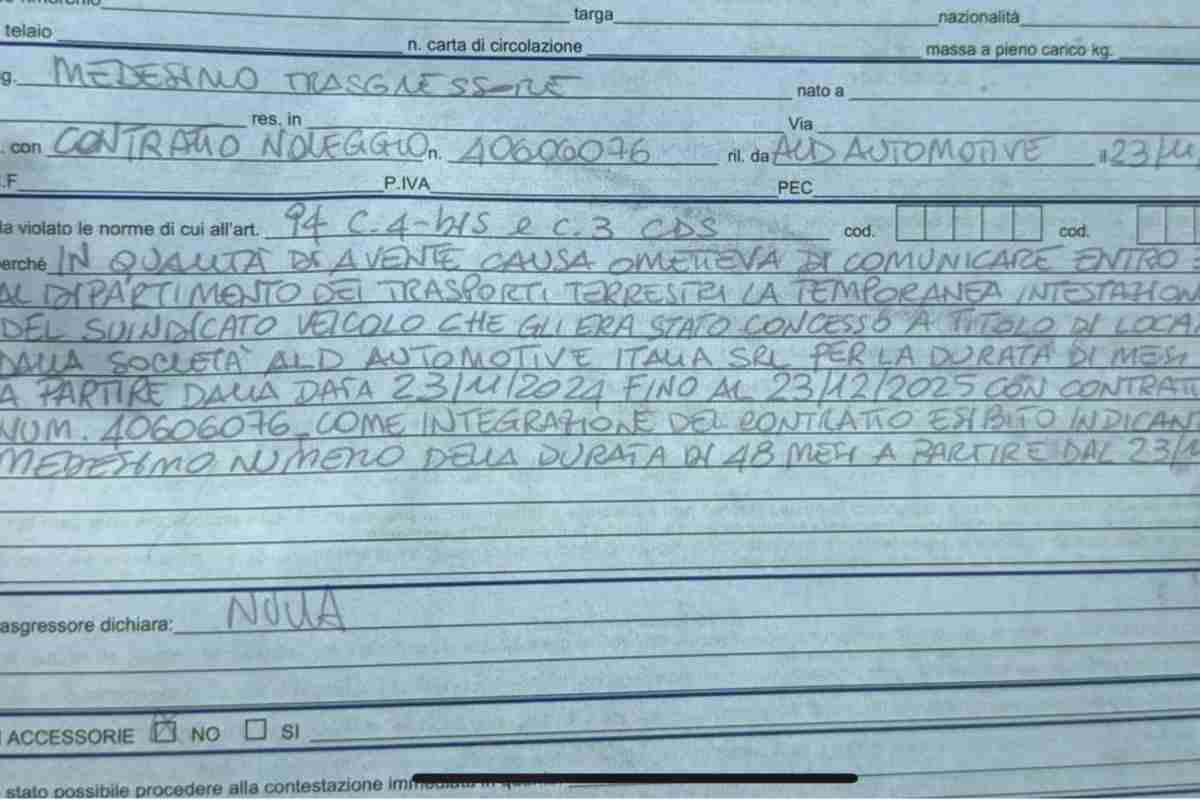 targa nazionalità
telaio n. carta di circolazione massa a pieno carico kg.
g. MEDESIMO TRASGRESSORE nato a
res. in Via
. con CONTRATTO NOLEGGIO n. 40606076 ril. da ALD AUTOMOTIVE il 23/11
.F P.IVA PEC
la violato le norme di cui all'art. 94 C.4-bis e C.3 CDS cod. cod.
erché IN QUALITÀ DI AVENTE CAUSA OMETTEVA DI COMUNICARE ENTRO
AL DIPARTIMENTO DEI TRASPORTI TERRESTRI LA TEMPORANEA INTESTAZION
DEL SUINDICATO VEICOLO CHE GLI ERA STATO CONCESSO A TITOLO DI LOCA
DALLA SOCIETÀ ALD AUTOMOTIVE ITALIA SRL PER LA DURATA DI MESI
A PARTIRE DALLA DATA 23/11/2024 FINO AL 23/12/2025 CON CONTRATT
NUM. 40606076 COME INTEGRAZIONE DEL CONTRATTO ESIBITO INDICAN
MEDESIMO NUMERO DELLA DURATA DI 48 MESI A PARTIRE DAL 23/1
asgressore dichiara: NULLA
I ACCESSORIE NO SI
stato possibile procedere alla contestazione imm